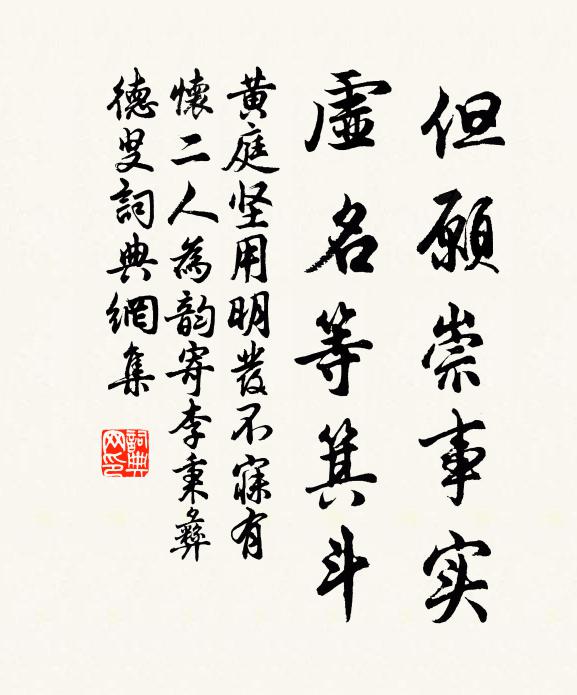 但願崇事实
虛名等箕斗
黄庭坚用明發不寐有
懷二人為韵寄李秉彝
德叟詞典網集
詞典网印